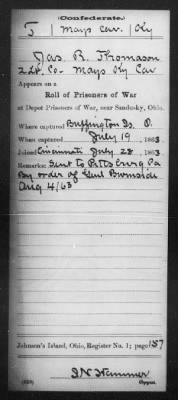 (Confederate.)
T | Mays Cav. | Ky
Jas. R. Thomason
Co. Mays Ky Cav
Appears on a
Roll of Prisoners of War
at Depot Prisoners of War, near Sandusky, Ohio.
Where captured Buffington Is. O.
When captured July 19, 1863
Joined Cincinnati July 28, 1863
Remarks: Sent to Pittsburg Pa
By order of Genl Burnside
Aug 4/63
Johnson's Island, Ohio, Register No. 1; page 157
Copyist.